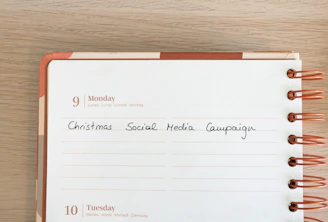 9 Monday
Christmas Social Media Campaign
10 Tuesday